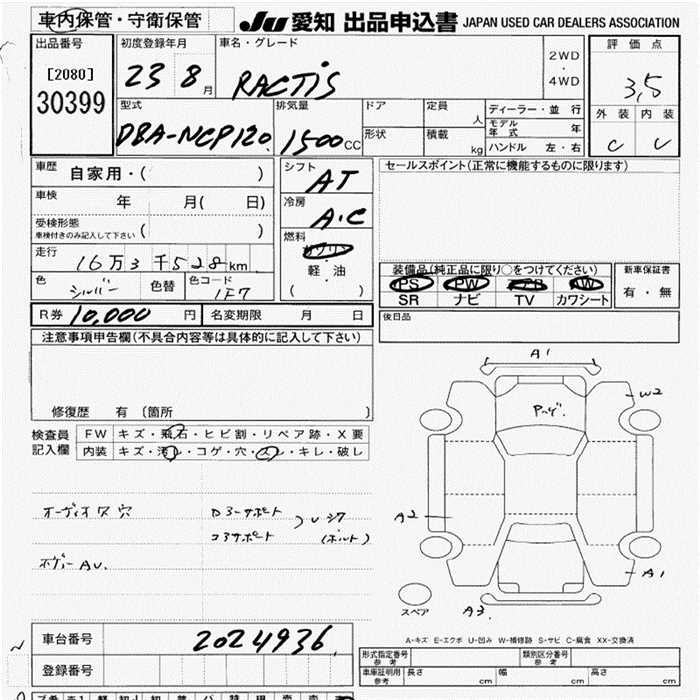 車内保管・守衛保管
JU 愛知 出品申込書 JAPAN USED CAR DEALERS ASSOCIATION
出品番号
[2080]
30399
初度登録年月
23 8月
車名・グレード
RACTIS
2WD
・
4WD
評価点
3,5
外装 内装
C C
型式
DBA-NCP120
排気量
1500CC
ドア
形状
定員
人
積載
kg
ディーラー・並行
モデル年式 年
ハンドル 左・右
車歴
自家用・( )
車検
年 月( 日)
受検形態
車検付きのみ記入して下さい ( )
走行
16万3千528km
色
シルバー
色替
色コード
1F7
シフト
AT
冷房
A・C
燃料
ガソリン
軽・油
( )
セールスポイント(正常に機能するものに限ります)
装備品(純正品に限り○をつけてください)
PS PW AW
SR ナビ TV カワシート
新車保証書
有・無
R券 10,000円
名変期限 月 日
後日品
注意事項申告欄(不具合内容等は具体的に記入して下さい)
修復歴 有 (箇所 )
検査員
記入欄
FW キズ・飛石・ヒビ割・リペア跡・X要
内装 キズ・汚レ・コゲ・穴・スレ・キレ・破レ
オーディオ 穴
コアサポート
(ボルト)
ボデー AU.
A1
W2
A2
A1
A3
スペア
A-キズ E-エクボ U-凹み W-補修跡 S-サビ C-腐食 XX-交換済
車台番号
2024936
登録番号
形式指定番号
参考
類別区分番号
参考
車庫証明用
参考
長さ cm
幅 cm
高さ cm